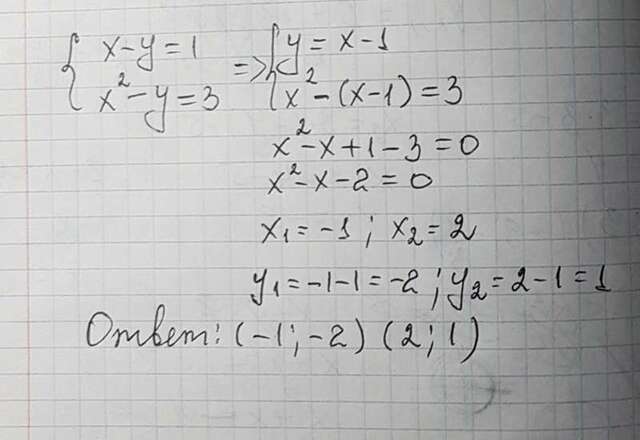 { x-y=1 => { y=x-1
{ x²-y=3 { x²-(x-1)=3
x²-x+1-3=0
x²-x-2=0
x₁=-1; x₂=2
y₁=-1-1=-2; y₂=2-1=1
Ответ: (-1;-2) (2;1)